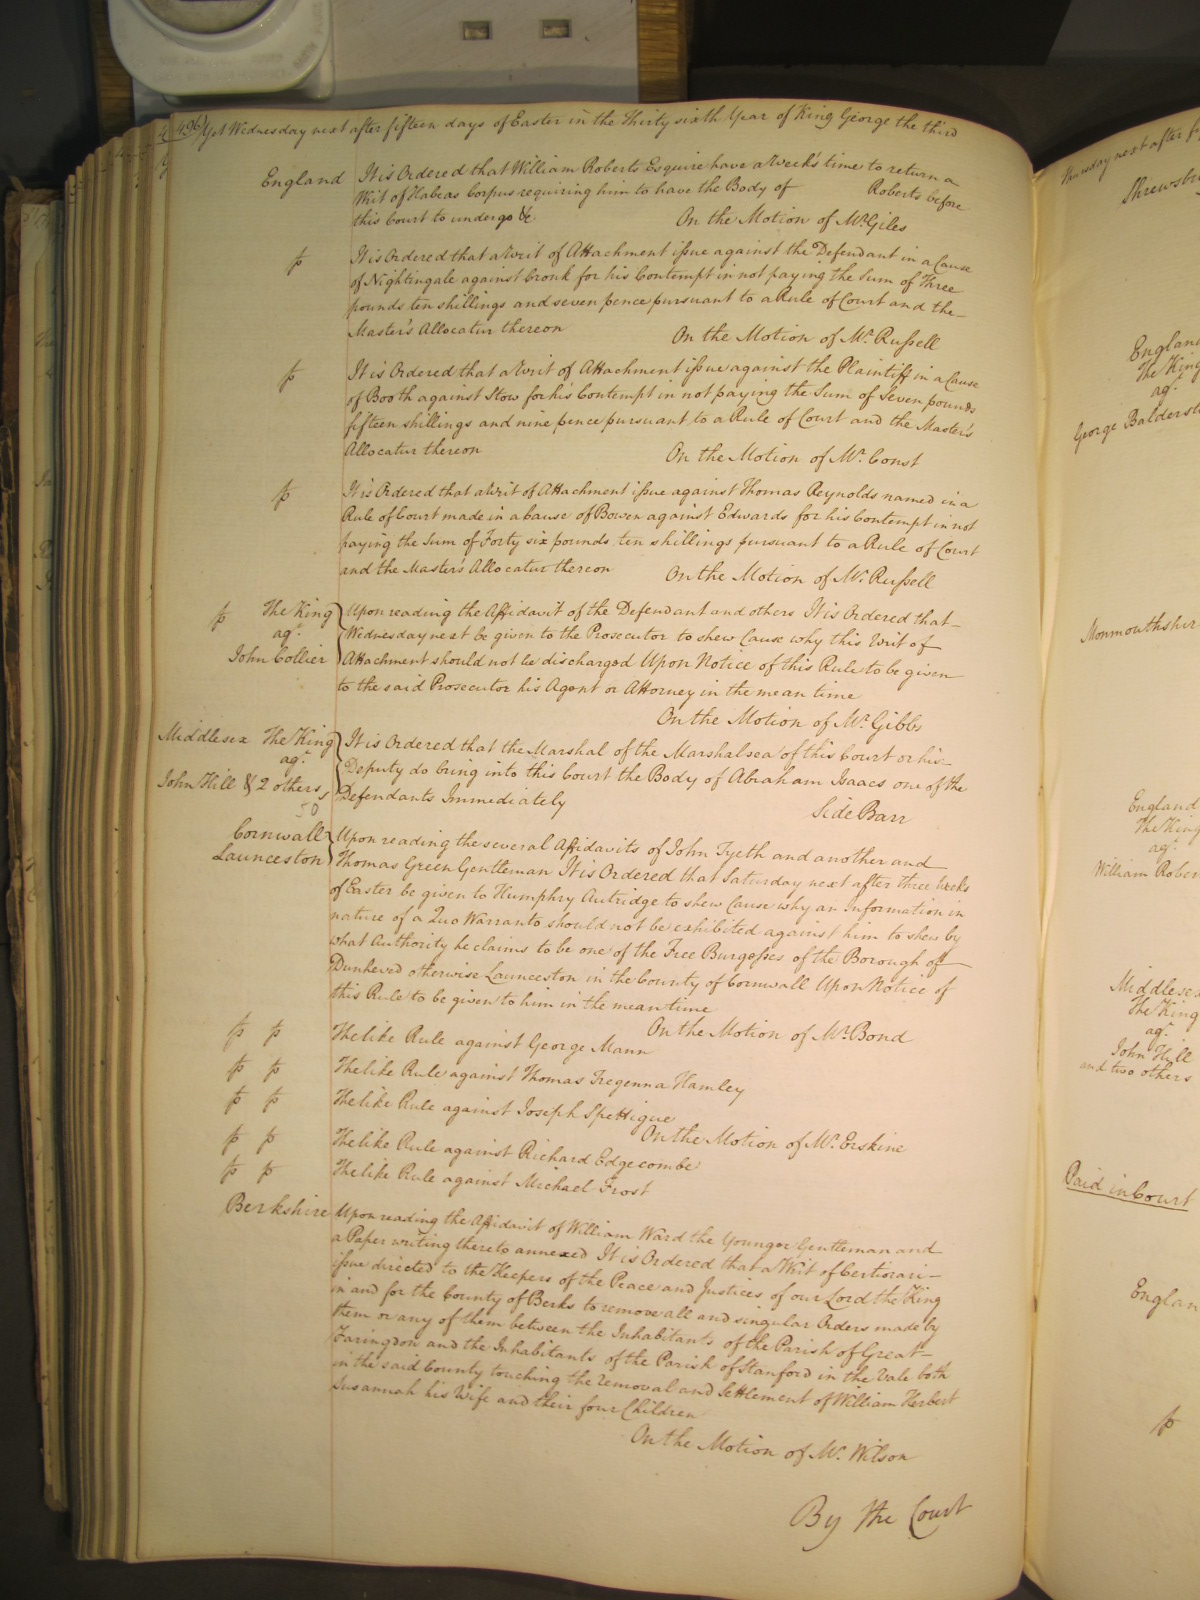 496) Yet Wednesday next after fifteen days of Easter in the Thirty sixth Year of King George the third
England It is Ordered that William Roberts Esquire have a Week's time to return a
Writ of Habeas Corpus requiring him to have the Body of Roberts before
this Court to undergo &c
On the Motion of Mr. Giles
It is Ordered that a Writ of Attachment issue against the Defendant in a Cause
of Nightingale against Cronk for his Contempt in not paying the Sum of Three
pounds ten shillings and seven pence pursuant to a Rule of Court and the
Master's Allocatur thereon
On the Motion of Mr. Russell
It is Ordered that a Writ of Attachment issue against the Plaintiff in a Cause
of Booth against Stow for his Contempt in not paying the Sum of Seven pounds
fifteen shillings and nine pence pursuant to a Rule of Court and the Master's
Allocatur thereon
On the Motion of Mr. Const
It is Ordered that a Writ of Attachment issue against Thomas Reynolds named in a
Rule of Court made in a Cause of Bowen against Edwards for his Contempt in not
paying the Sum of Forty six pounds ten shillings pursuant to a Rule of Court
and the Master's Allocatur thereon
On the Motion of Mr. Russell
The King
agt.
John Collier
Upon reading the Affidavit of the Defendant and others It is Ordered that
Wednesday next be given to the Prosecutor to shew Cause why this Writ of
Attachment should not be discharged Upon Notice of this Rule to be given
to the said Prosecutor his Agent or Attorney in the mean time
On the Motion of Mr. Gibbs
Middlesex The King
agt.
John Hill & 2 others
It is Ordered that the Marshal of the Marshalsea of this Court or his
Deputy do bring into this Court the Body of Abraham Isaacs one of the
Defendants Immediately
Side Barr
Cornwall
Launceston
Upon reading the several Affidavits of John Tyeth and another and
Thomas Green Gentleman It is Ordered that Saturday next after three Weeks
of Easter be given to Humphry Autridge to shew Cause why an Information in
nature of a Quo Warranto should not be exhibited against him to shew by
what Authority he claims to be one of the Free Burgesses of the Borough of
Dunheved otherwise Launceston in the County of Cornwall Upon Notice of
this Rule to be given to him in the mean time
On the Motion of Mr. Bond
The like Rule against George Mann
The like Rule against Thomas Tregenna Hamley
The like Rule against Joseph Spettigue
On the Motion of Mr. Erskine
The like Rule against Richard Edgecombe
The like Rule against Michael Frost
Berkshire Upon reading the Affidavit of William Ward the Younger Gentleman and
a Paper writing thereto annexed It is Ordered that a Writ of Certiorari
issue directed to the Keepers of the Peace and Justices of our Lord the King
in and for the County of Berks to remove all and singular Orders made by
them or any of them between the Inhabitants of the Parish of Great
Faringdon and the Inhabitants of the Parish of Stanford in the Vale both
in the said County touching the Removal and Settlement of William Herbert
Susannah his Wife and their four Children
On the Motion of Mr. Wilson
By the Court
Thursday next after
England
The King
agt.
George
England
The King
agt.
William
The King
agt.
John Hill
and two others
Paid in Court